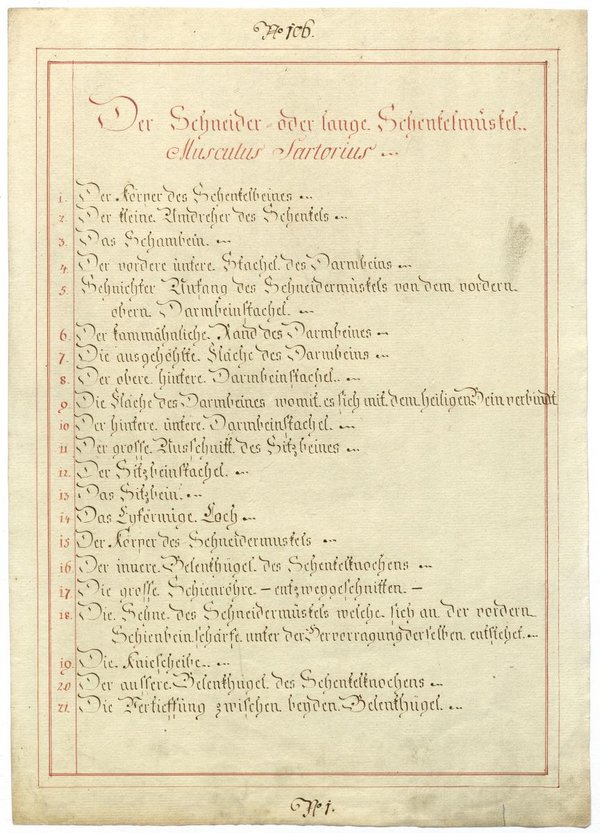 No 106.
Der Schneider- oder lange Schenkelmüskel.
Musculus Sartorius
1. Der Körper des Schenkelbeines
2. Der kleine Umdreher des Schenkels
3. Das Schambein.
4. Der vordere üntere Stachel des Darmbeins
5. Sehnichter Anfang des Schneidermüskels von dem vordern
obern Darmbeinstachel.
6. Der kammähnliche Rand des Darmbeines
7. Die ausgehöhlte Fläche des Darmbeins
8. Der obere hintere Darmbeinstachel.
9. Die Fläche des Darmbeines womit es sich mit dem heiligen Bein verbindt
10. Der hintere üntere Darmbeinstachel.
11. Der grosse Ausschnitt des Sitzbeines
12. Der Sitzbeinstachel.
13. Das Sitzbein.
14. Das Eyförmige Loch
15. Der Körper des Schneidermuskels
16. Der innere Gelenkhügel des Schenkelknochens
17. Die grosse Schienröhre - entzweygeschnitten. -
18. Die Sehne des Schneidermüskels welche sich an der vordern
Schienbeinschärfe unter der Hervorragung derselben entstehet.
19. Die Kniescheibe.
20. Der aussere Gelenkhügel des Schenkelknochens
21. Die Vertieffung zwischen beyden Gelenkhügel.
No 1.